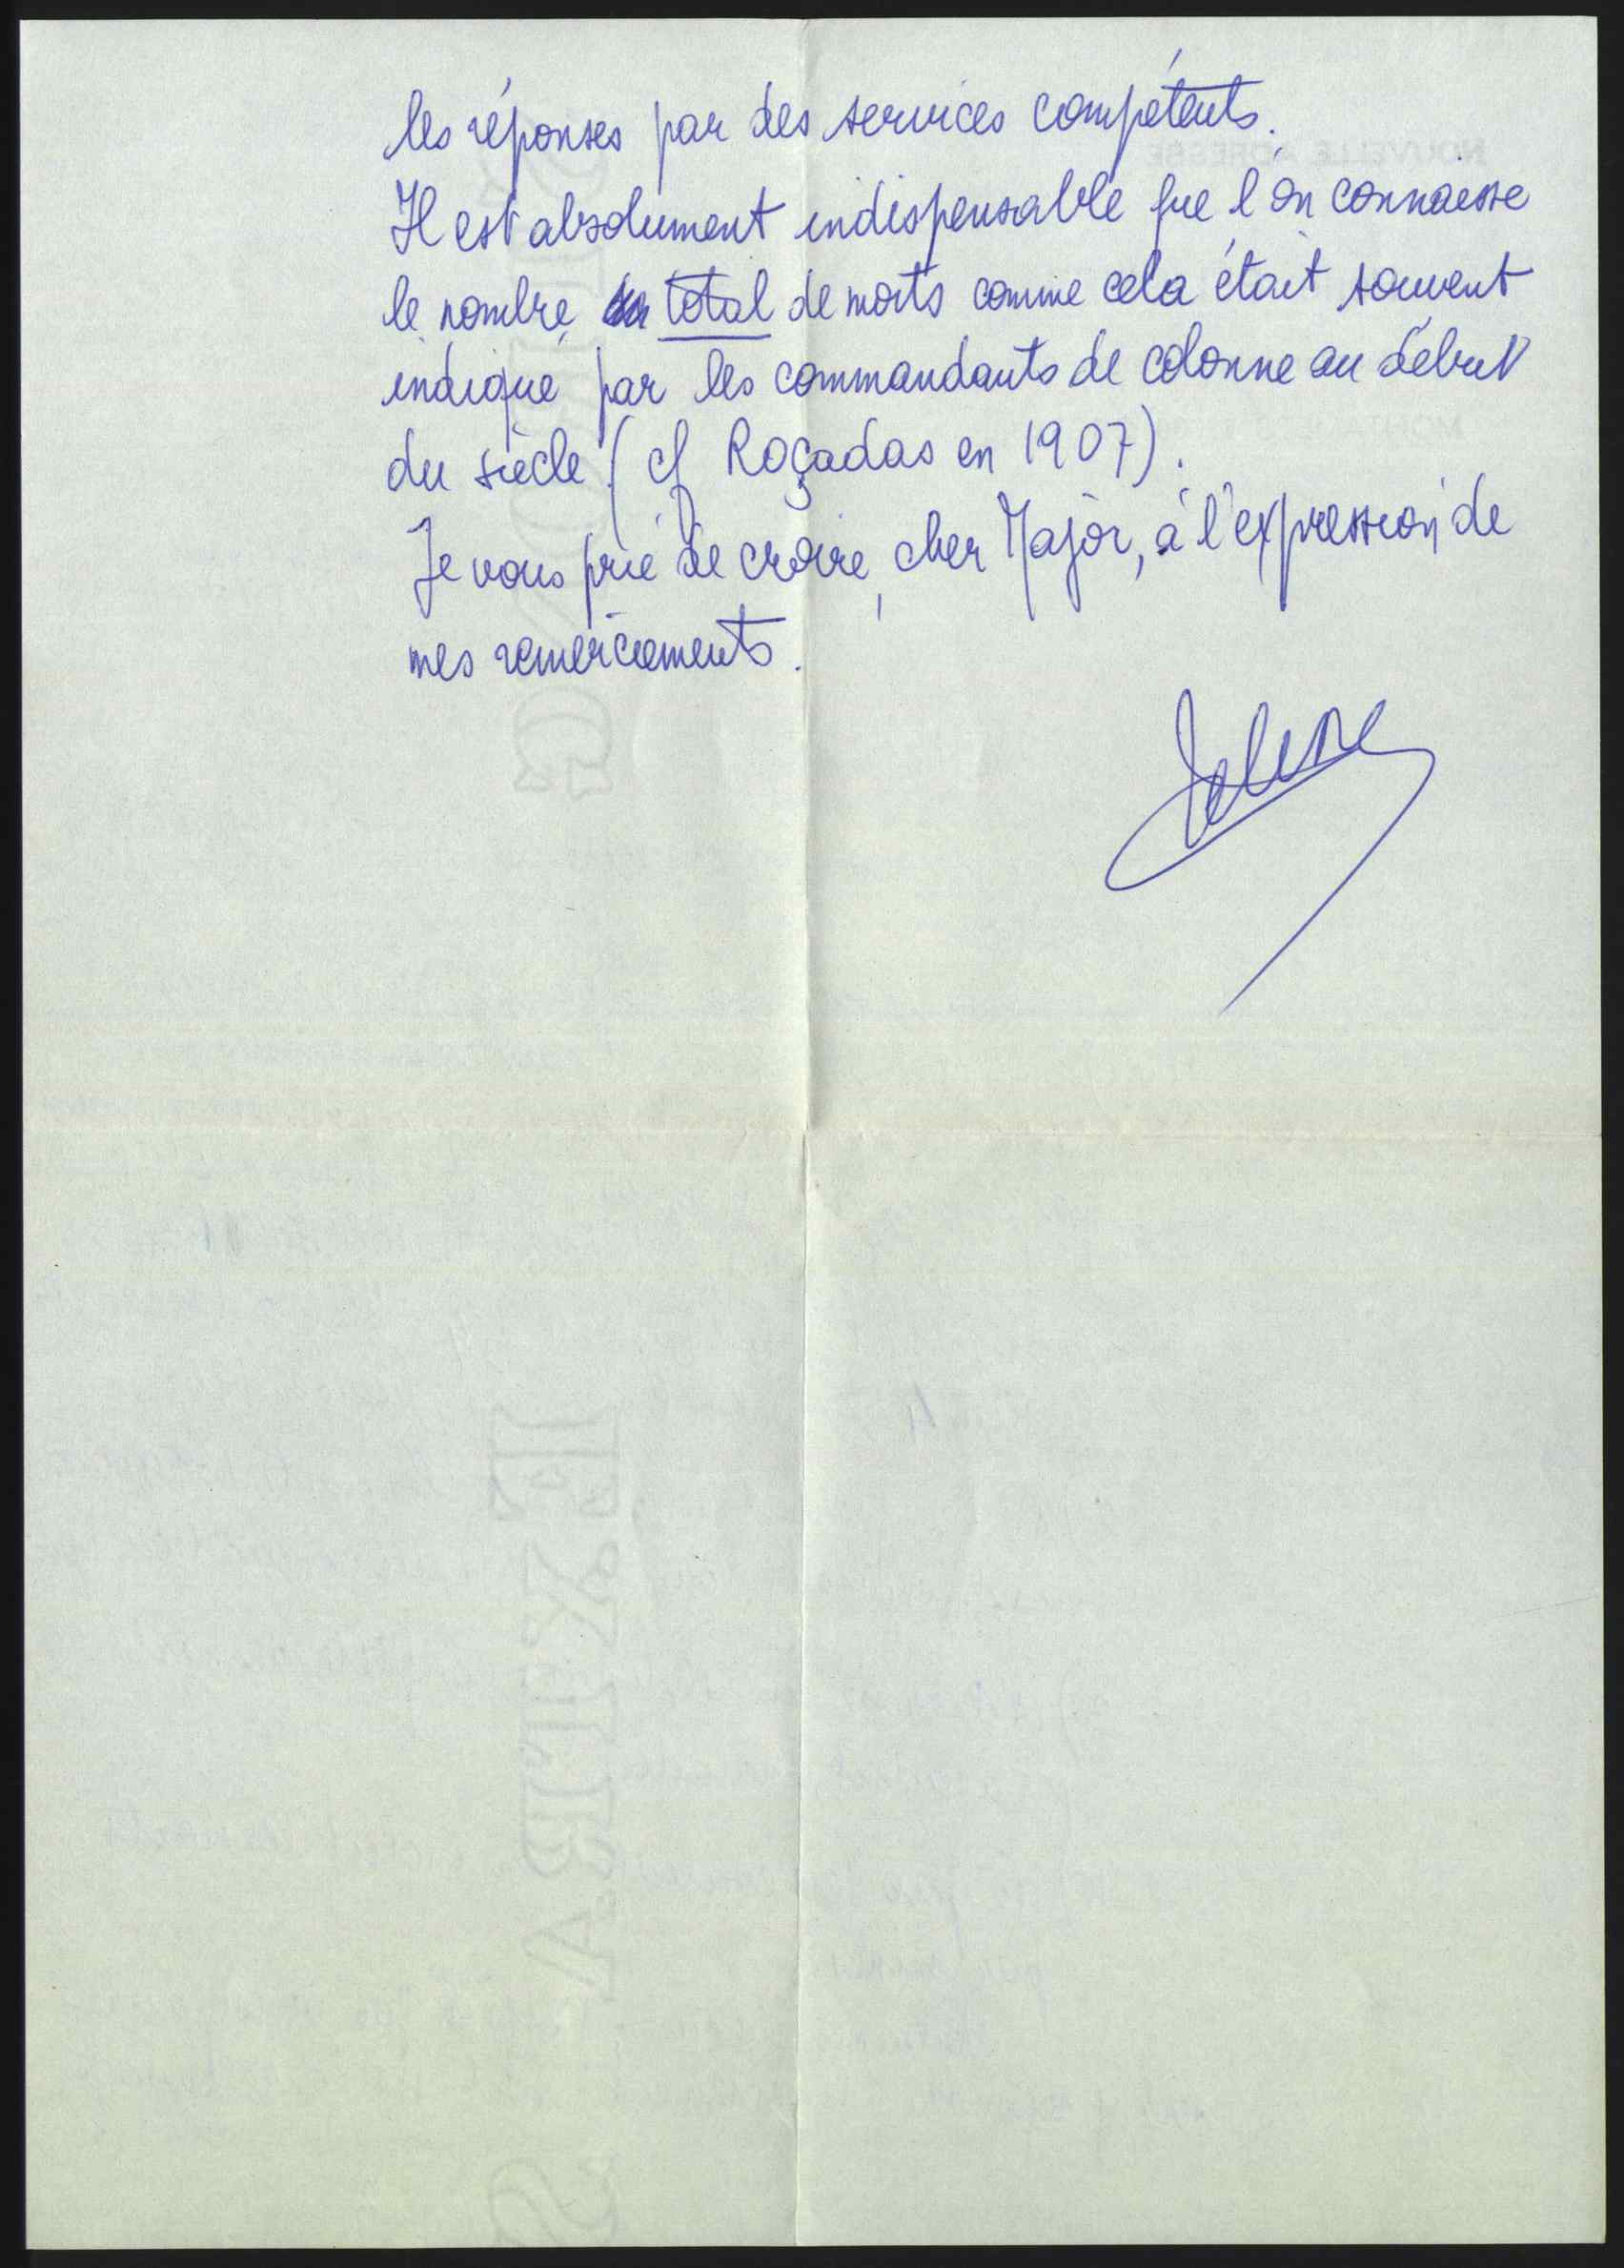 les réponses par des services compétents.
Il est absolument indispensable que l'on connaisse
le nombre total de morts comme cela était souvent
indiqué par les commandants de colonne au début
du siècle (cf Roçadas en 1907).
Je vous prie de croire, cher Major, à l'expression de
mes remerciements.
NOUVELLE ADRESSE
EXTRA